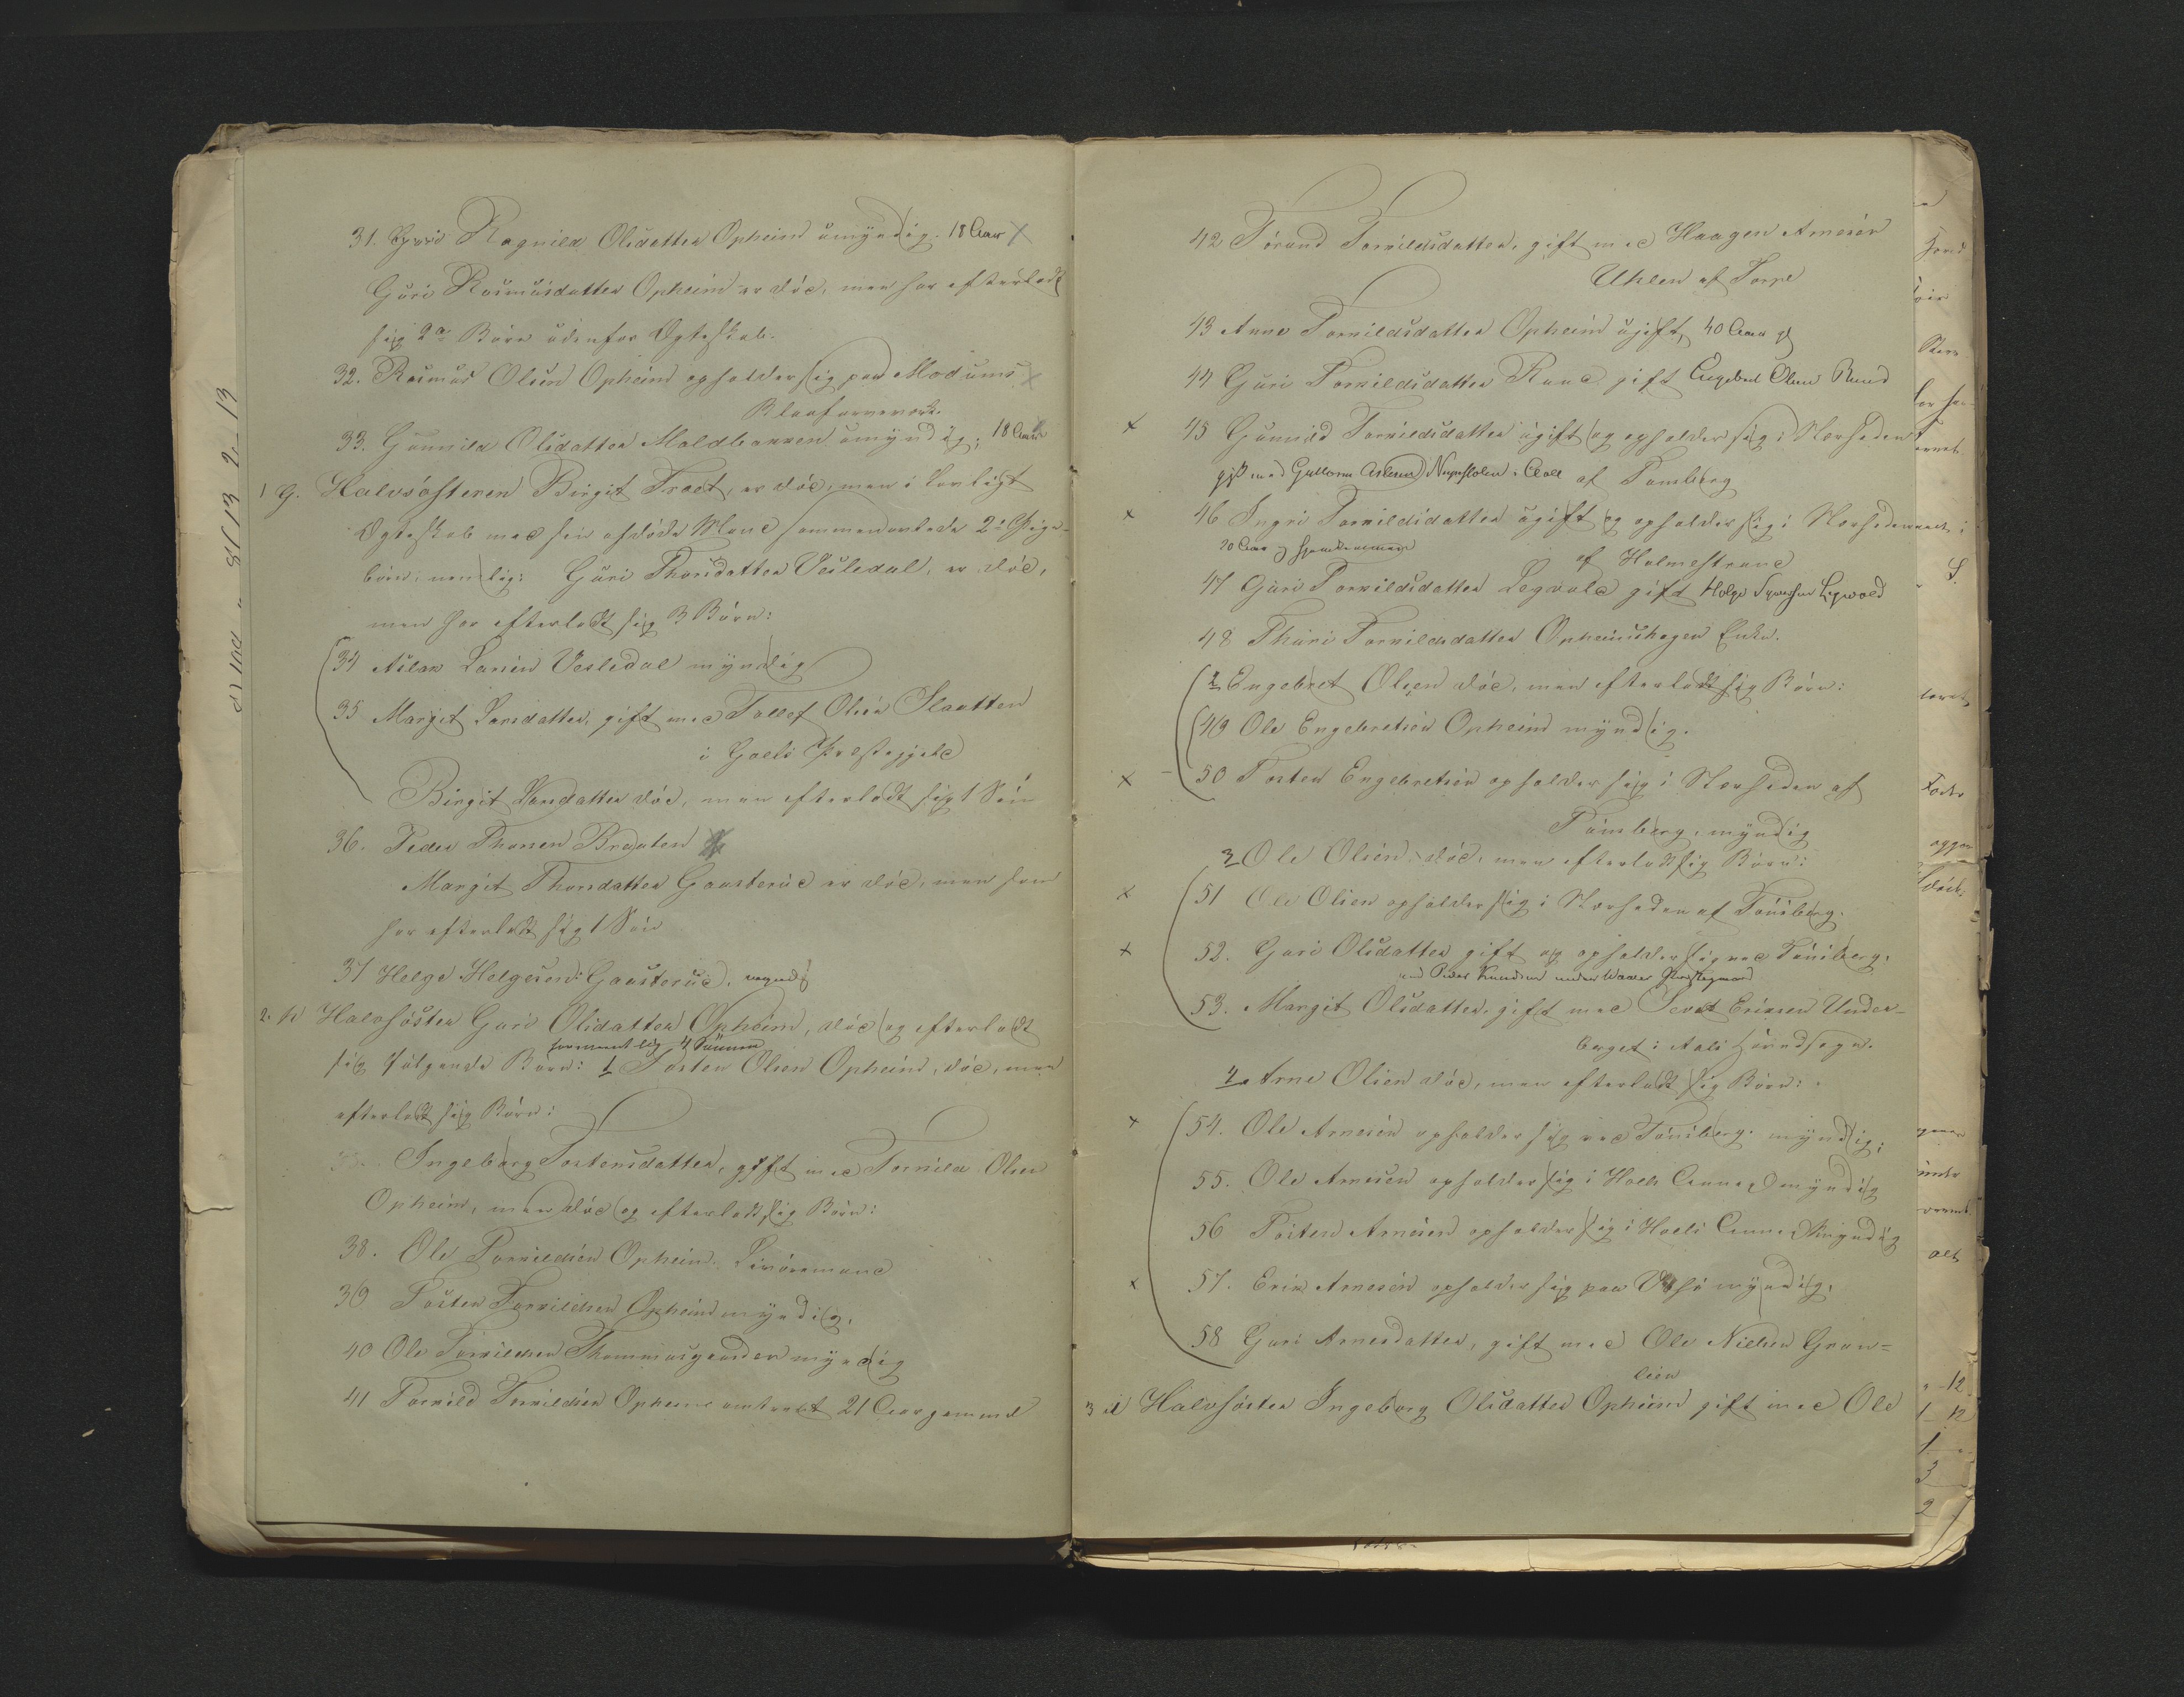 31. Ragnild Olsdatter Opheim umyndig. 18 Aar
Guri Rasmusdatter Opheim er död, men har efterladt
sig 2de Börn udenfor Ægteskab.
32. Rasmus Olsen Opheim opholder sig paa Modums
Blaafarveværk.
33. Gunnild Olsdatter Moldbakken umyndig, 18 Aar
1 g. Halvsösteren Birgit Troet, er död, men i lovligt
Ægteskab med sin afdöde Mand sammenavlede 2de Pige-
börn, nemlig: Guri Thorsdatter Vesledal, er död,
men har efterladt sig 3 Börn:
34 Aslak Larsen Vesledal myndig
35 Margit Larsdatter, gift med Tollef Olsen Slaatten
i Goels Præstegjeld
Birgit Larsdatter död, men efterladt sig 1 Sön
36. Peder Thorsen Braaten
Margit Thorsdatter Gausterud er död, men som
har efterladt sig 1 Sön
37 Helge Helgesen Gausterud. myndig
2. h Halvsöster Guri Olsdatter Opheim, död og efterladt
fornemmelig 4 Sönner
sig fölgende Börn: 1 Tosten Olsen Opheim, död, men
efterladt sig Börn:
Ingeborg Tostensdatter, gift med Torkild Olsen
Opheim, men död og efterladt sig Börn:
38. Ole Torkildsen Opheim
39 Tosten Torkildsen Opheim myndig.
40 Ole Torkildsen Thommasgaarden myndig
41 Torkild Torkildsen Opheim omtrent 21 Aar gammel
42 Jörand Torkildsdatter, gift med Haagen Arnesen
Uhlen af Torpe
43 Anne Torkildsdatter Opheim ugift, 40 Aar
44 Guri Torkildsdatter Ruud gift Engebret Olsen Ruud
x 45 Gunild Torkildsdatter ugift og opholder sig i Nærheden
gift med Guttorm Aslesen i Aal af Tonsberg
x 46 Ingri Torkildsdatter ugift og opholder sig i Nærheden
20 Aar og hjemkommen af Holmestrand
47 Guri Torkildsdatter Legvold gift Helge Syversen Legvold
48 Thuri Torkildsdatter Opheimshagen Enke.
2 Engebret Olsen död, men efterladt sig Börn:
49 Ole Engebretsen Opheim myndig.
x 50 Tosten Engebretsen opholder sig i Nærheden af
Tönsberg, myndig
3 Ole Olsen död, men efterladt sig Börn:
x 51 Ole Olsen opholder sig i Nærheden af Tönsberg.
x 52. Guri Olsdatter gift og opholder sig ved Tönsberg.
med Peder Knudsen under Waaler Præstegaard
53. Margit Olsdatter, gift med Sevat Eriksen Under-
berget i Aals Hovedsogn.
4 Arne Olsen död, men efterladt sig Börn:
x 54. Ole Arnesen opholder sig ved Tönsberg. myndig;
55. Ole Arnesen opholder sig i Hols Annex myndig
56 Tosten Arnesen opholder sig i Hols Annex Myndig
x 57. Erik Arnesen opholder sig paa myndig,
58 Guri Arnesdatter, gift med Ole Nielsen Grön=
lien
3 d Halvsöster Ingeborg Olsdatter Opheim gift med Ole